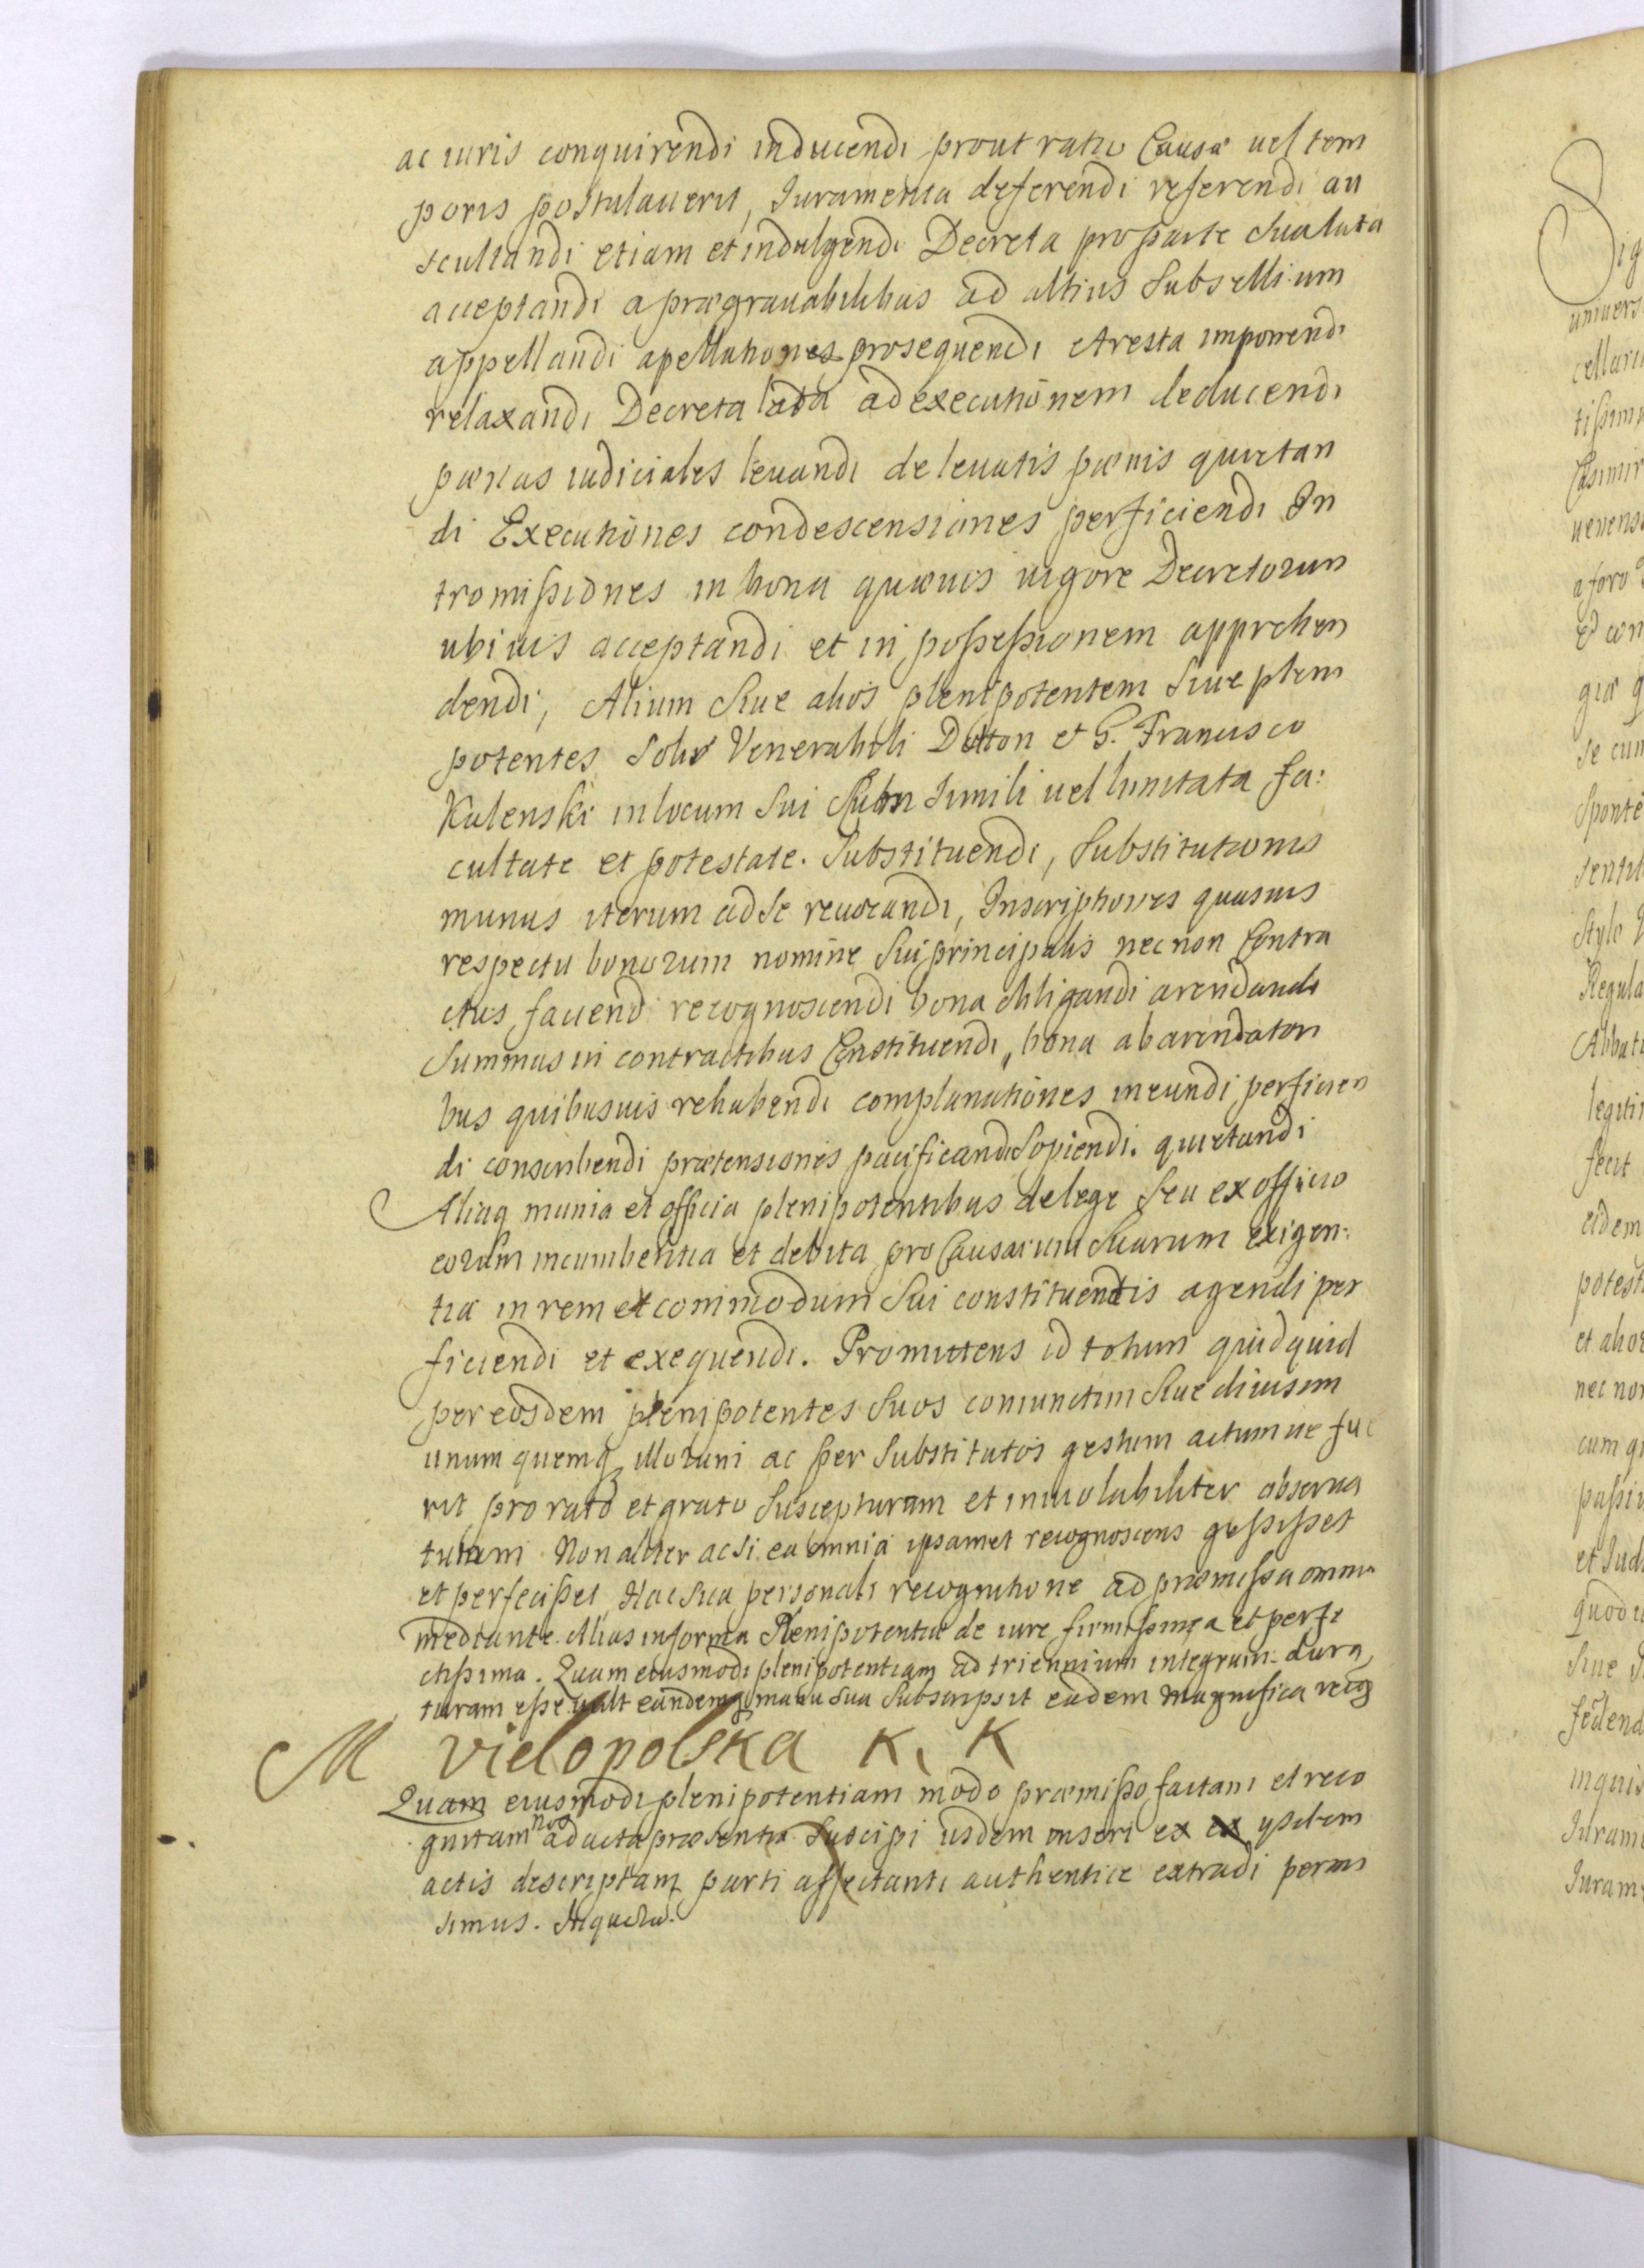 ac iuris conquirendi inducendi prout ratio Causæ uel tem
poris postulauerit, Iuramenta deferendi referendi au
scultandi etiam et indulgendi Decreta pro parte sua lata
acceptandi a prægrauabilibus ad altius Subsellium
appellandi apellationes prosequendi Aresta imponendi
relaxandi Decreta lata ad executionem deducendi
pænas iudiciales leuandi de leuatis pænis quietan
di Executiones condescensiones perficiendi In
tromißiones in bona quæuis uigore Decretorum
ubiuis acceptandi et in poßeßionem apprehen
dendi, Alium Siue alios plenipotentem Siue pleni
potentes Solis Venerabili Dutton et G. Francisco
Kulenski in locum Sui Cum Simili uel limitata fa:
cultate et potestate. Substituendi, Substitutionis
munus iterum ad Se reuocandi, Inscriptiones quasuis
respectu bonorum nomine Sui principalis nec non Contra
ctus faciendi recognoscendi bona obligandi arendandi
Summas in contractibus Constituendi, bona ab arendatori
bus quibusuis rehabendi complanationes ineundi perficien
di conscribendi prætensiones pacificandi Sopiendi. quietandi
Aliaq munia et officia plenipotentibus de lege Seu ex officio
eorum incumbentia et debita pro Causarum Suarum exigen:
tia in rem et commodum Sui constituentis agendi per
ficiendi et exequendi. Promittens id totum quidquid
per eosdem plenipotentes Suos coniunctim Siue diuisim
unum quemq illorum ac per Substitutos gestum actumue fue
rit pro rato et grato Suscepturam et inuiolabiliter obserua
turam Non aliter ac Si ea omnia ipsamet recognoscens geßißet
et perfecißet Hac Sua personali recognitione ad præmißa omnia
mediante. Alias in forma Plenipotentiæ de iure firmißima et perfe
ctißima. Quam eiusmodi plenipotentiam ad triennium integrum dura
turam eße uult eandemq manu Sua Subscripsit eadem Magnifica recog
M vielopolska K. K
Quam eiusmodi plenipotentiam modo præmißo factam et reco
gnitam Nos ad acta præsentia Suscipi iisdem inseri ex ysdem
actis descriptam parti affectanti authentice extradi permi
simus.